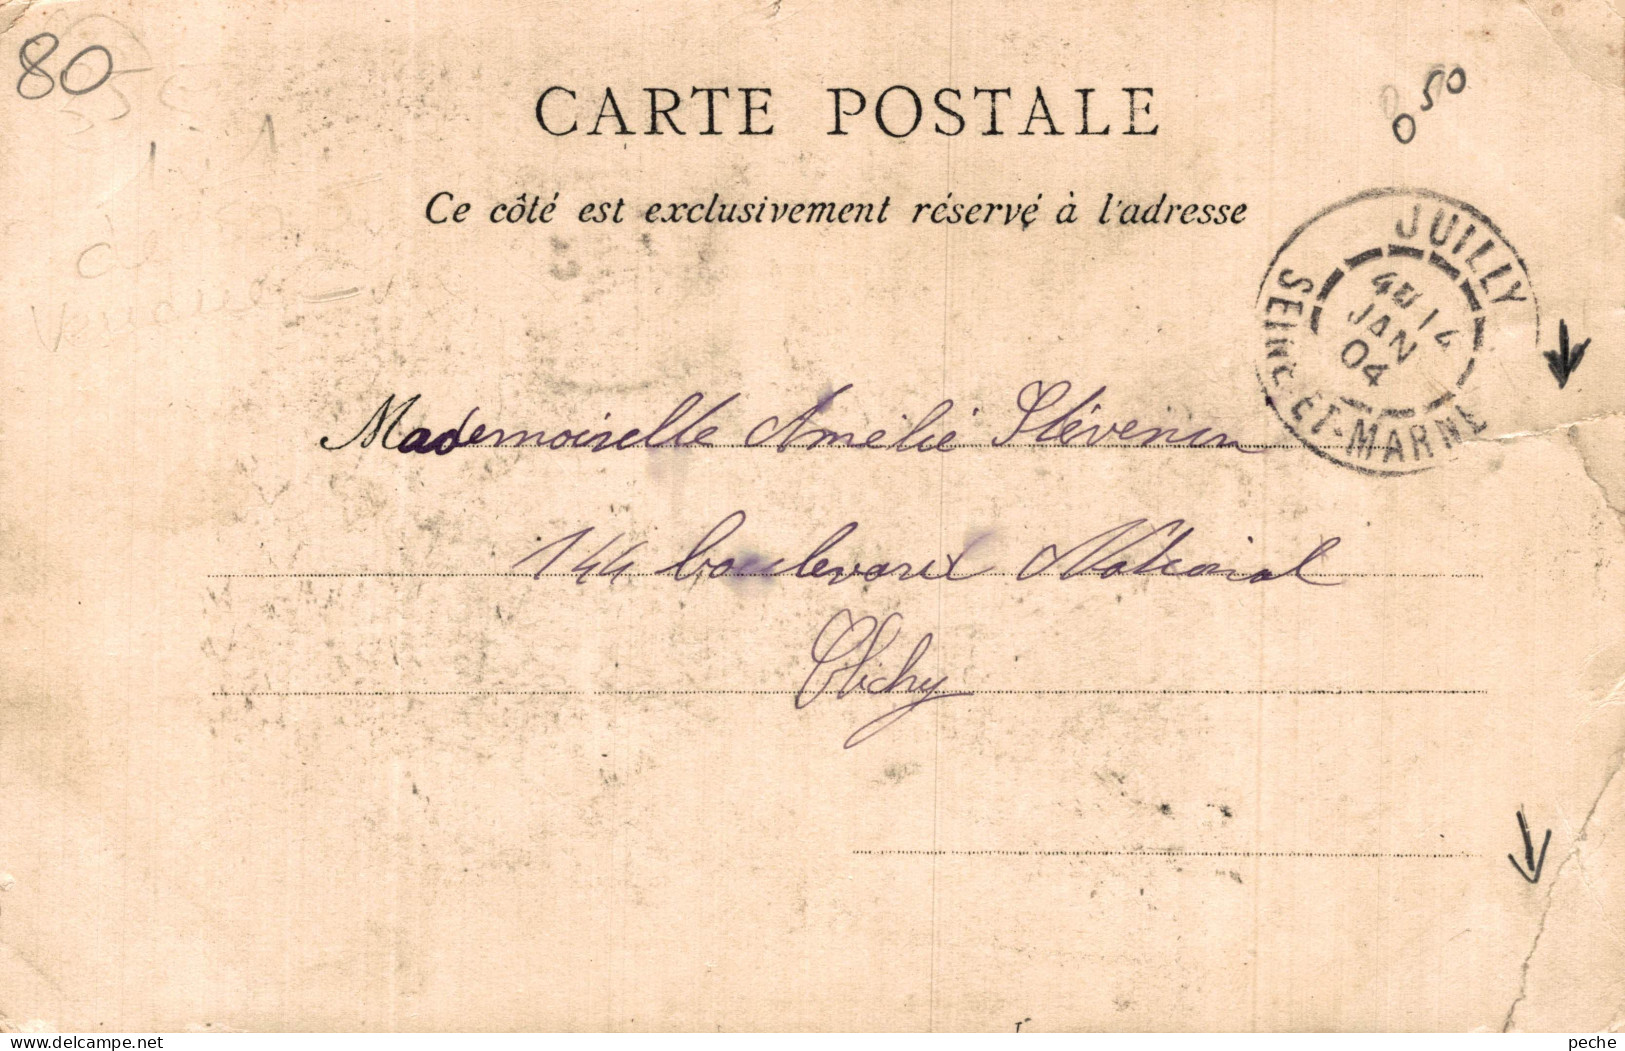 80
CARTE POSTALE
050
Ce côté est exclusivement réservé à l'adresse
JUILLY
SEINE-ET-MARNE
14
JAN
04
Mademoiselle Amélie Stévenin
144 boulevard National
Clichy
delcampe.net
peche